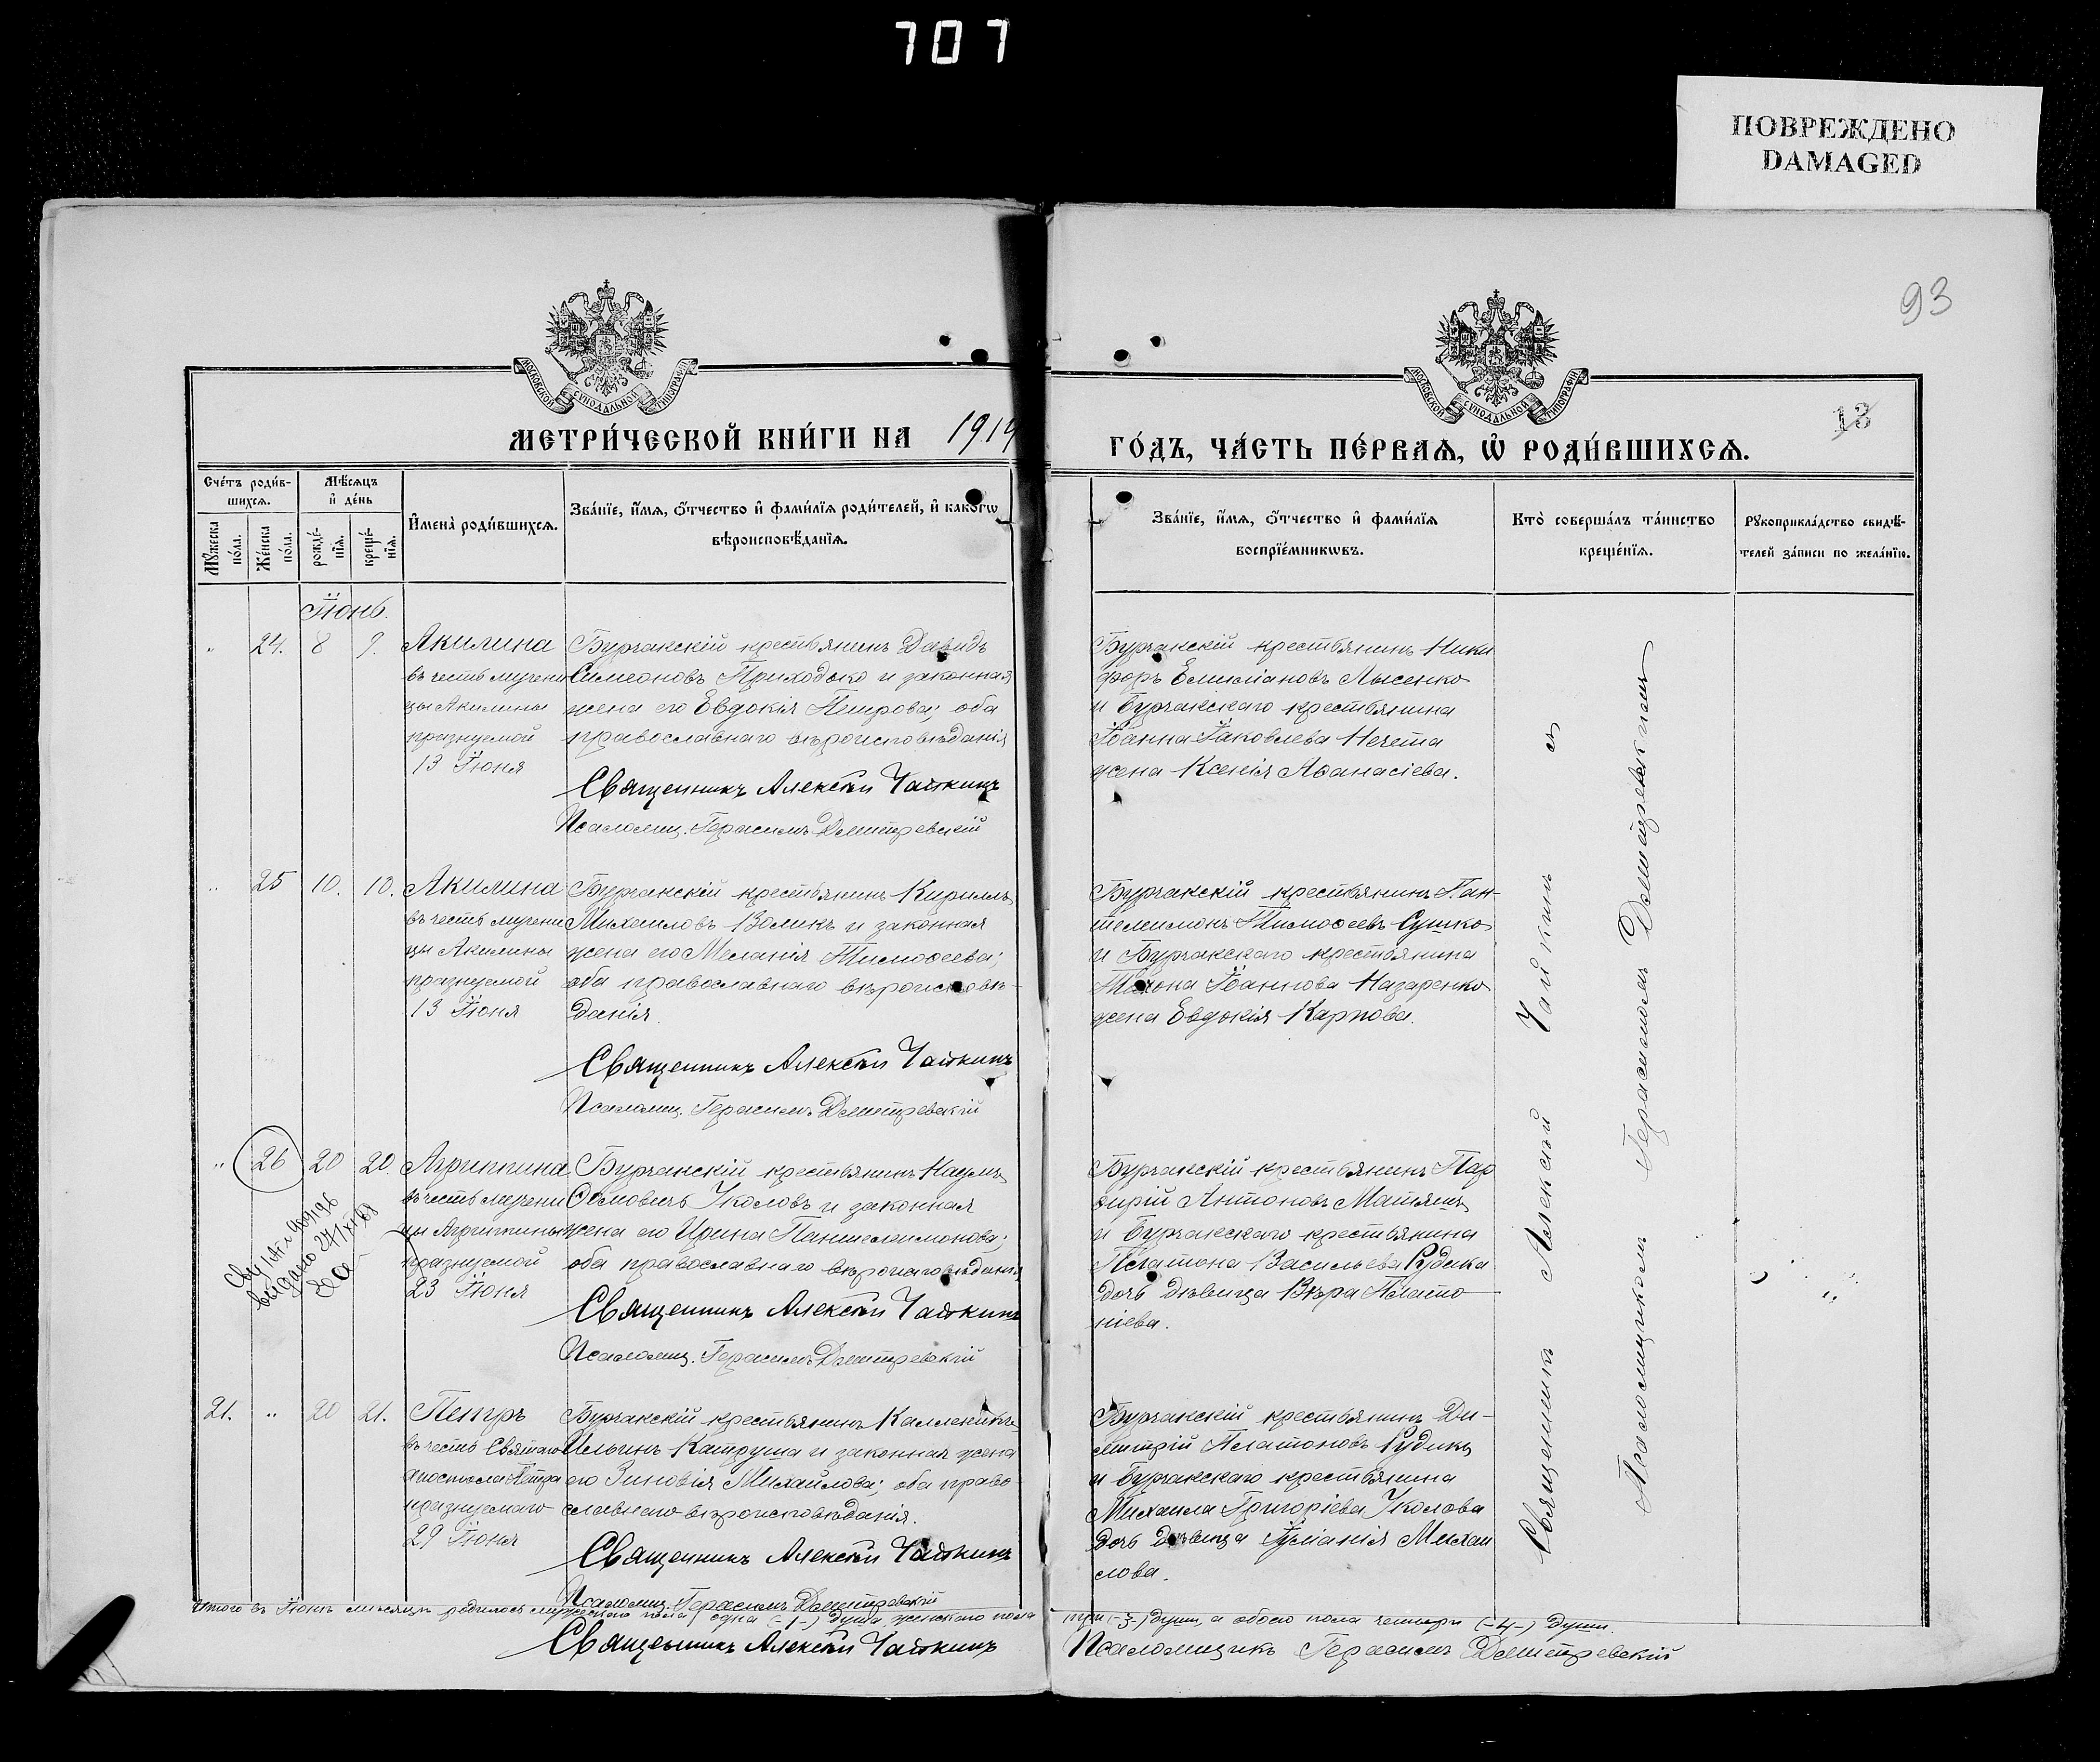 707
ПОВРЕЖДЕНО
DAMAGED
93
МОСКОВСКОЙ СѴНОДАЛЬНОЙ ТИПОГРАФІИ
МОСКОВСКОЙ СѴНОДАЛЬНОЙ ТИПОГРАФІИ
13
МЕТРИ́ЧЕСКОЙ КНИ́ГИ НА 1914
ГО́ДЪ, ЧА́СТЬ ПЕ́РВАѦ, Ѡ҆ РОДИ́ВШИХСѦ.
Сче́тъ роди́в-
шихсѧ.
Мѣ́сѧцъ
и҆ де́нь
Мꙋ́жеска
по́ла.
Же́нска
по́ла.
рожде́-
нїѧ.
креще́-
нїѧ.
И҆мена̀ роди́вшихсѧ.
Зва́нїе, и҆́мѧ, ѻ҆́тчество и҆ фами́лїѧ роди́телей, и҆ како́гѡ
вѣроисповѣ́данїѧ.
Зва́нїе, и҆́мѧ, ѻ҆́тчество и҆ фами́лїѧ
воспрїе́мникѡвъ.
Кто̀ соверша́лъ та́инство
креще́нїѧ.
Рꙋкоприкла́дство свидѣ́-
телей за́писи по жела́нїю.
Іюнь.
" 24. 8 9. Акилина
въ честь мучени
цы Акилины
празнуемой
13 Іюня
Бурчакскій крестьянинъ Давидъ
Симеоновъ Приходько и законная
жена его Евдокія Петрова; оба
православнаго вѣроисповѣданія
Священникъ Алексѣй Чайкинъ
Псаломщ. Герасимъ Дмитревскій
Бурчакскій крестьянинъ Ники
форъ Емиліановъ Лысенко
и Бурчакскаго крестьянина
Іоанна Іаковлева Нечета
жена Ксенія Аѳанасіева.
" 25 10. 10. Акилина
въ честь мучени
цы Акилины
празнуемой
13 Іюня
Бурчакскій крестьянинъ Кириллъ
Михаиловъ Воликъ и законная
жена его Меланія Тимоѳеева;
оба православнаго вѣроисповѣ-
данія.
Священникъ Алексѣй Чайкинъ
Псаломщ. Герасимъ Дмитревскій
Бурчакскій крестьянинъ Пан-
телеимонъ Тимоѳеевъ Сушко
и Бурчакскаго крестьянина
Тихона Іоаннова Назаренко
жена Евдокія Карпова.
" 26 20 20. Агриппина
въ честь мучени
цы Агриппины
празнуемой
23 Іюня
выдано
Бурчакскій крестьянинъ Наумъ
Уколовъ и законная
жена его Ирина Пантелеимонова;
оба православнаго вѣроисповѣданія
Священникъ Алексѣй Чайкинъ
Псаломщ. Герасимъ Дмитревскій
Бурчакскій крестьянинъ Пар
фирій Антоновъ Матяшъ
и Бурчакскаго крестьянина
Платона Васильева Рудика
дочь дѣвица Вѣра Плато
ніева.
21. " 20 21. Петръ
въ честь Святаго
Апостола Петра
празнуемаго
29 Іюня
Бурчакскій крестьянинъ Каллиникъ
Ильинъ Катруша и законная жена
его Зиновія Михайлова; оба право
славнаго вѣроисповѣданія.
Священникъ Алексѣй Чайкинъ
Псаломщ. Герасимъ Дмитревскій
Бурчакскій крестьянинъ Ди-
митрій Платоновъ Рудикъ
и Бурчакскаго крестьянина
Михаила Григоріева Уколова
дочь дѣвица Іуліанія Михаи
лова.
Священникъ Алексѣй Чайкинъ
съ
Псаломщикомъ Герасимомъ Дмитревскимъ
Итого въ Іюнѣ мѣсяцѣ родилось мужескаго пола одна (-1-) душа, женскаго пола три (-3-) души, а обоего пола четыре (-4-) души.
Священникъ Алексѣй Чайкинъ
Псаломщикъ Герасимъ Дмитревскій